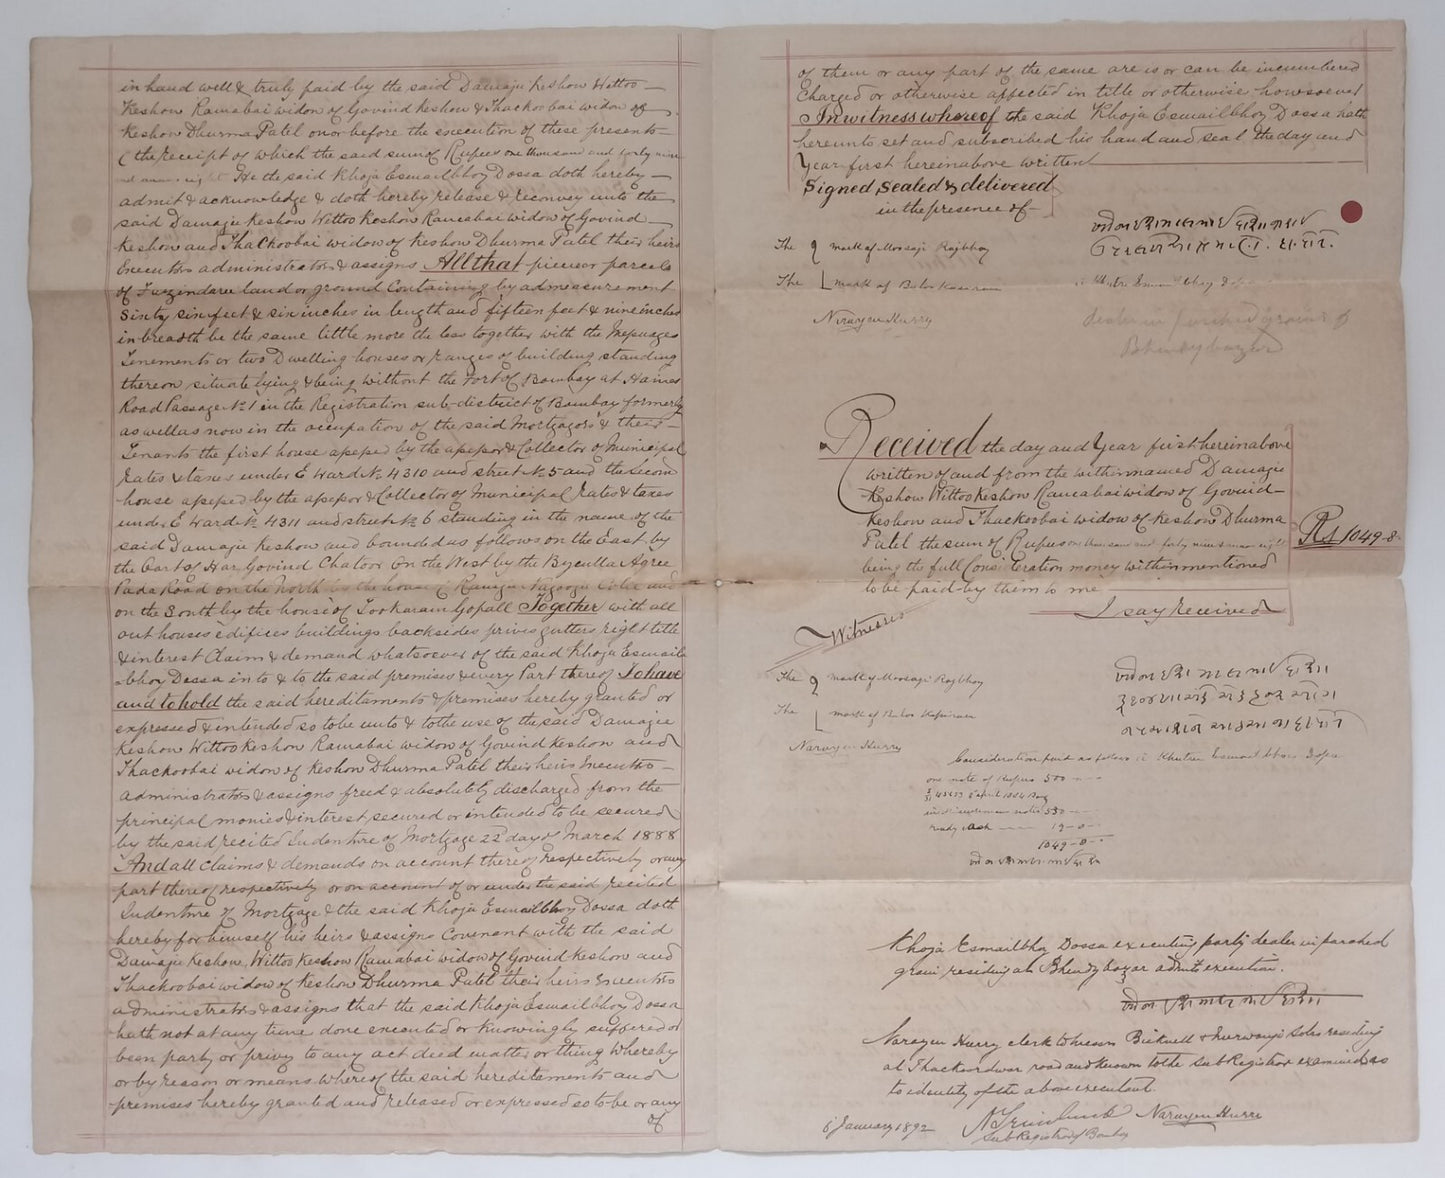 in hand well & truly paid by the said Damajee Keshow Wittoo
Keshow Ramabai widow of Govind Keshow & Thackoobai widow of
Keshow Dhurma Patel on or before the execution of these presents
(the receipt of which the said sum of Rupees one thousand and forty nine
and annas eight He the said Khoja Esmailbhoy Dossa doth hereby
admit & acknowledge & doth hereby release & reconvey unto the
said Damajee Keshow Wittoo Keshow Ramabai widow of Govind
Keshow and Thackoobai widow of Keshow Dhurma Patel their heirs
Executors administrators & assigns All that piece or parcels
of Fazindaree land or ground Containing by admeasurement
Sixty six feet & six inches in length and fifteen feet & nine inches
in breadth be the same little more the less together with the Messuages
Tenements or two Dwelling houses or ranges of building standing
thereon situate lying & being without the Fort of Bombay at Haines
Road Passage No 1 in the Registration sub-district of Bombay formerly
as well as now in the occupation of the said Mortgagors & their
Tenants the first house assessed by the assessor & Collector of Municipal
rates & taxes under E Ward No 4310 and street No 5 and the Second
house assessed by the assessor & Collector of Municipal rates & taxes
under E Ward No 4311 and street No 6 standing in the name of the
said Damajee Keshow and bounded as follows on the East by
the Oart of Har Govind Chatoor On the West by the Byculla Agree
Pada Road on the North by the house of Ramajee Nagojee and
on the South by the house of Tookaram Gopall Together with all
out houses edifices buildings backsides privis gutters right title
& interest Claim & demand whatsoever of the said Khoja Esmail
-bhoy Dossa in to & to the said premises & every Part thereof To have
and to hold the said hereditaments & premises hereby granted or
expressed & intended so to be unto & to the use of the said Damajee
Keshow Wittoo Keshow Ramabai widow of Govind Keshow and
Thackoobai widow of Keshow Dhurma Patel their heirs Executors
administrators & assigns freed & absolutely discharged from the
principal monies & interest secured or intended to be secured
by the said recited Indenture of Mortgage 22 day of March 1888
And all claims & demands on account thereof respectively or any
part thereof respectively or on account of or under the said recited
Indenture of Mortgage & the said Khoja Esmailbhoy Dossa doth
hereby for himself his heirs & assigns Covenant with the said
Damajee Keshow, Wittoo Keshow Ramabai widow of Govind Keshow and
Thackoobai widow of Keshow Dhurma Patel their heirs executors
administrators & assigns that the said Khoja Esmailbhoy Dossa
hath not at any time done executed or knowingly suffered or
been party or privy to any act deed matter or thing whereby
or by reason or means whereof the said hereditaments and
premises hereby granted and released or expressed so to be or any
of
of them or any part of the same are is or can be incumbered
Charged or otherwise affected in title or otherwise howsoever
In witness whereof the said Khoja Esmailbhoy Dossa hath
hereunto set and subscribed his hand and seal the day and
Year first hereinabove written
Signed, Sealed & delivered
in the presence of
The mark of Morsaji Rajbhoy
The mark of
Narayen Hurry
dealer in parched grains of
Bhendy bazar
Received the day and Year first hereinabove
written of and from the within named Damajee
Keshow Wittoo Keshow Ramabai widow of Govind
Keshow and Thackoobai widow of Keshow Dhurma
Patel the sum of Rupees one thousand and forty nine & annas eight
being the full Consideration money within mentioned
to be paid by them to me
Rs 1049-8-
I say received
Witnesses
The mark of Morsaji Rajbhoy
The mark of
Narayen Hurry
Consideration paid as follows
one note of Rupees 500
ready cash 19-0-
1049-0-
Khoja Esmailbhoy Dossa executing party dealer in parched
grain residing at Bhendy bazar admits execution.
Narayen Hurry clerk to Messrs Bicknell & Merwanji Solrs residing
at Thackoordwar road and known to the Sub Registrar examined as
to identity of the above executant.
Narayen Hurry
6 January 1892
Sub Registrar of Bombay